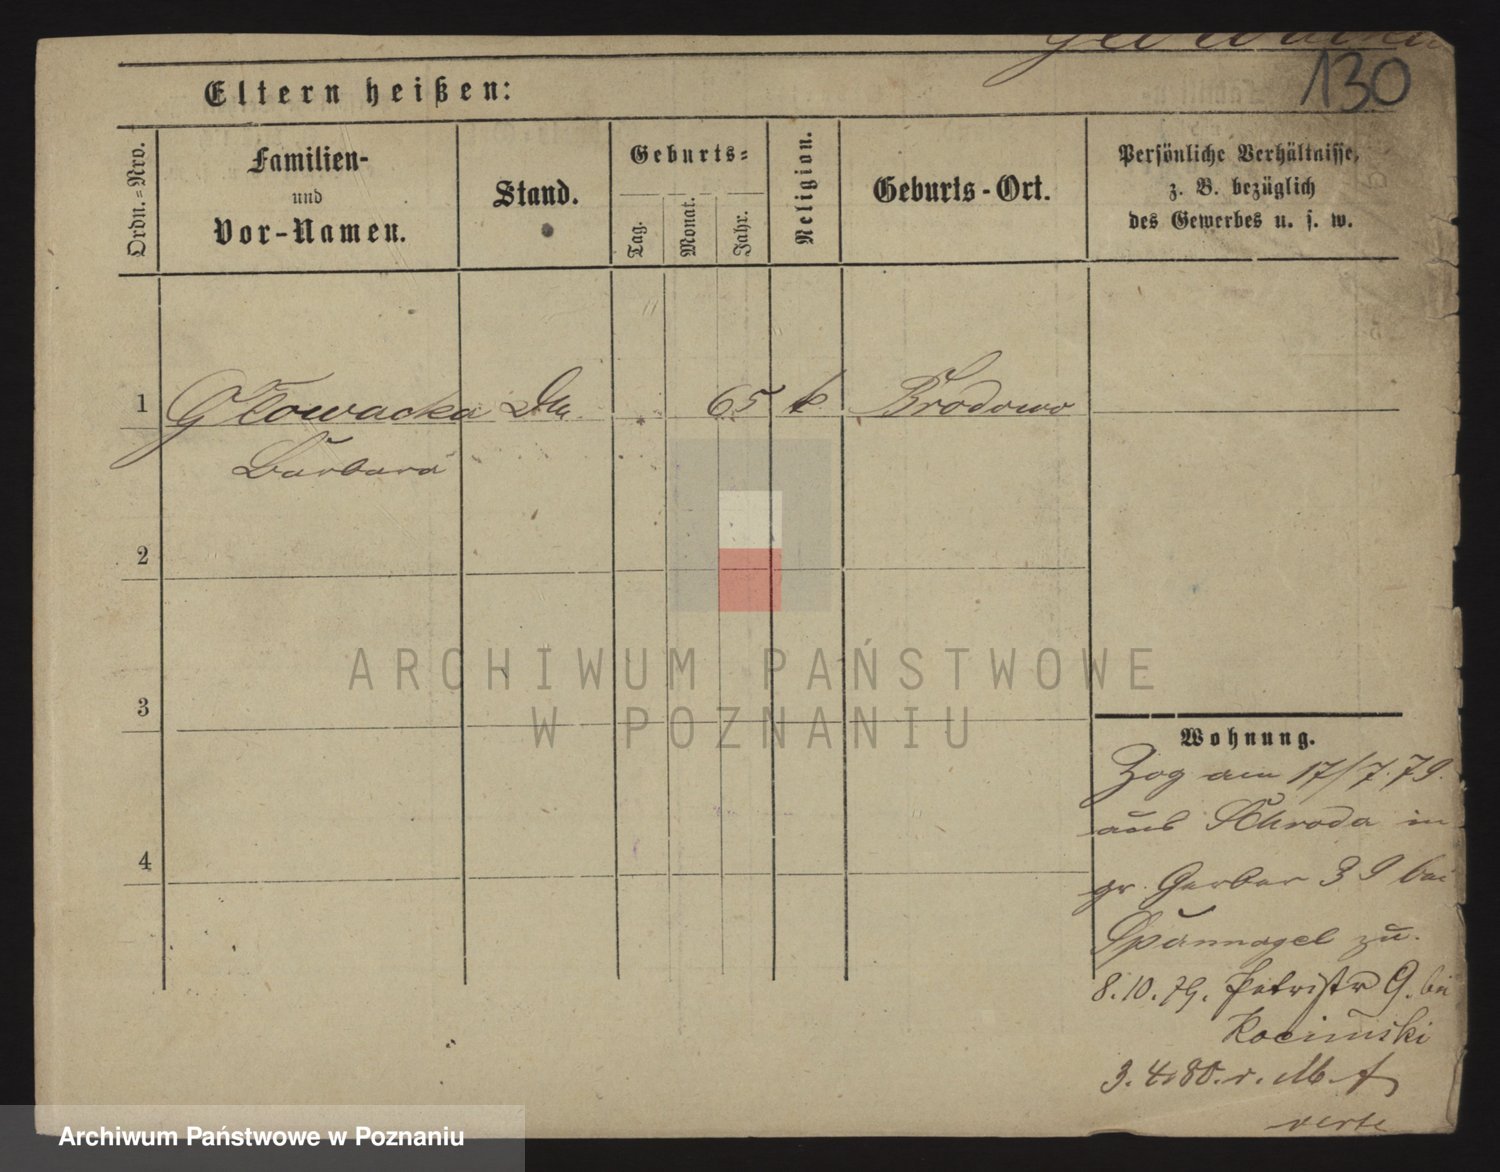 130
Eltern heißen:
Ordn.=Nro.
Familien-
und
Vor-Namen.
Stand.
Geburts=
Tag.
Monat.
Jahr.
Religion.
Geburts-Ort.
Persönliche Verhältnisse,
z. B. bezüglich
des Gewerbes u. s. w.
1 Głowacka 65 k Brodowo
Barbara
2
3
4
ARCHIWUM PAŃSTWOWE
W POZNANIU
Wohnung.
Zog am 17/7.79.
aus Schroda in
gr. Gerber 39 bei
Spannagel zu.
8.10.79. Petristr 9. bei
Kocinski
3.4.80. v. M.
verte
Archiwum Państwowe w Poznaniu